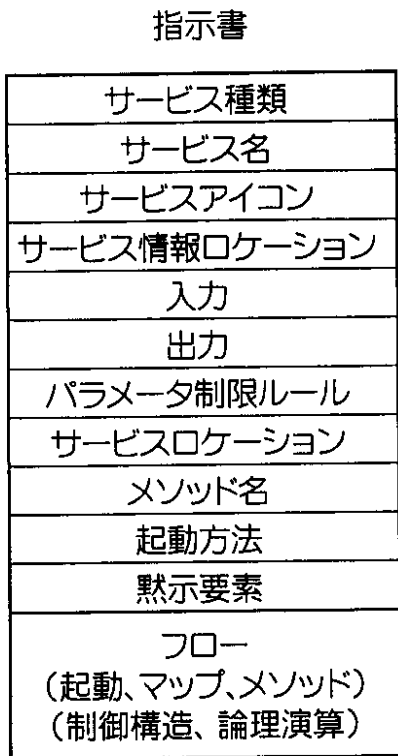 指示書
サービス種類
サービス名
サービスアイコン
サービス情報ロケーション
入力
出力
パラメータ制限ルール
サービスロケーション
メソッド名
起動方法
黙示要素
フロー
（起動、マップ、メソッド）
（制御構造、論理演算）